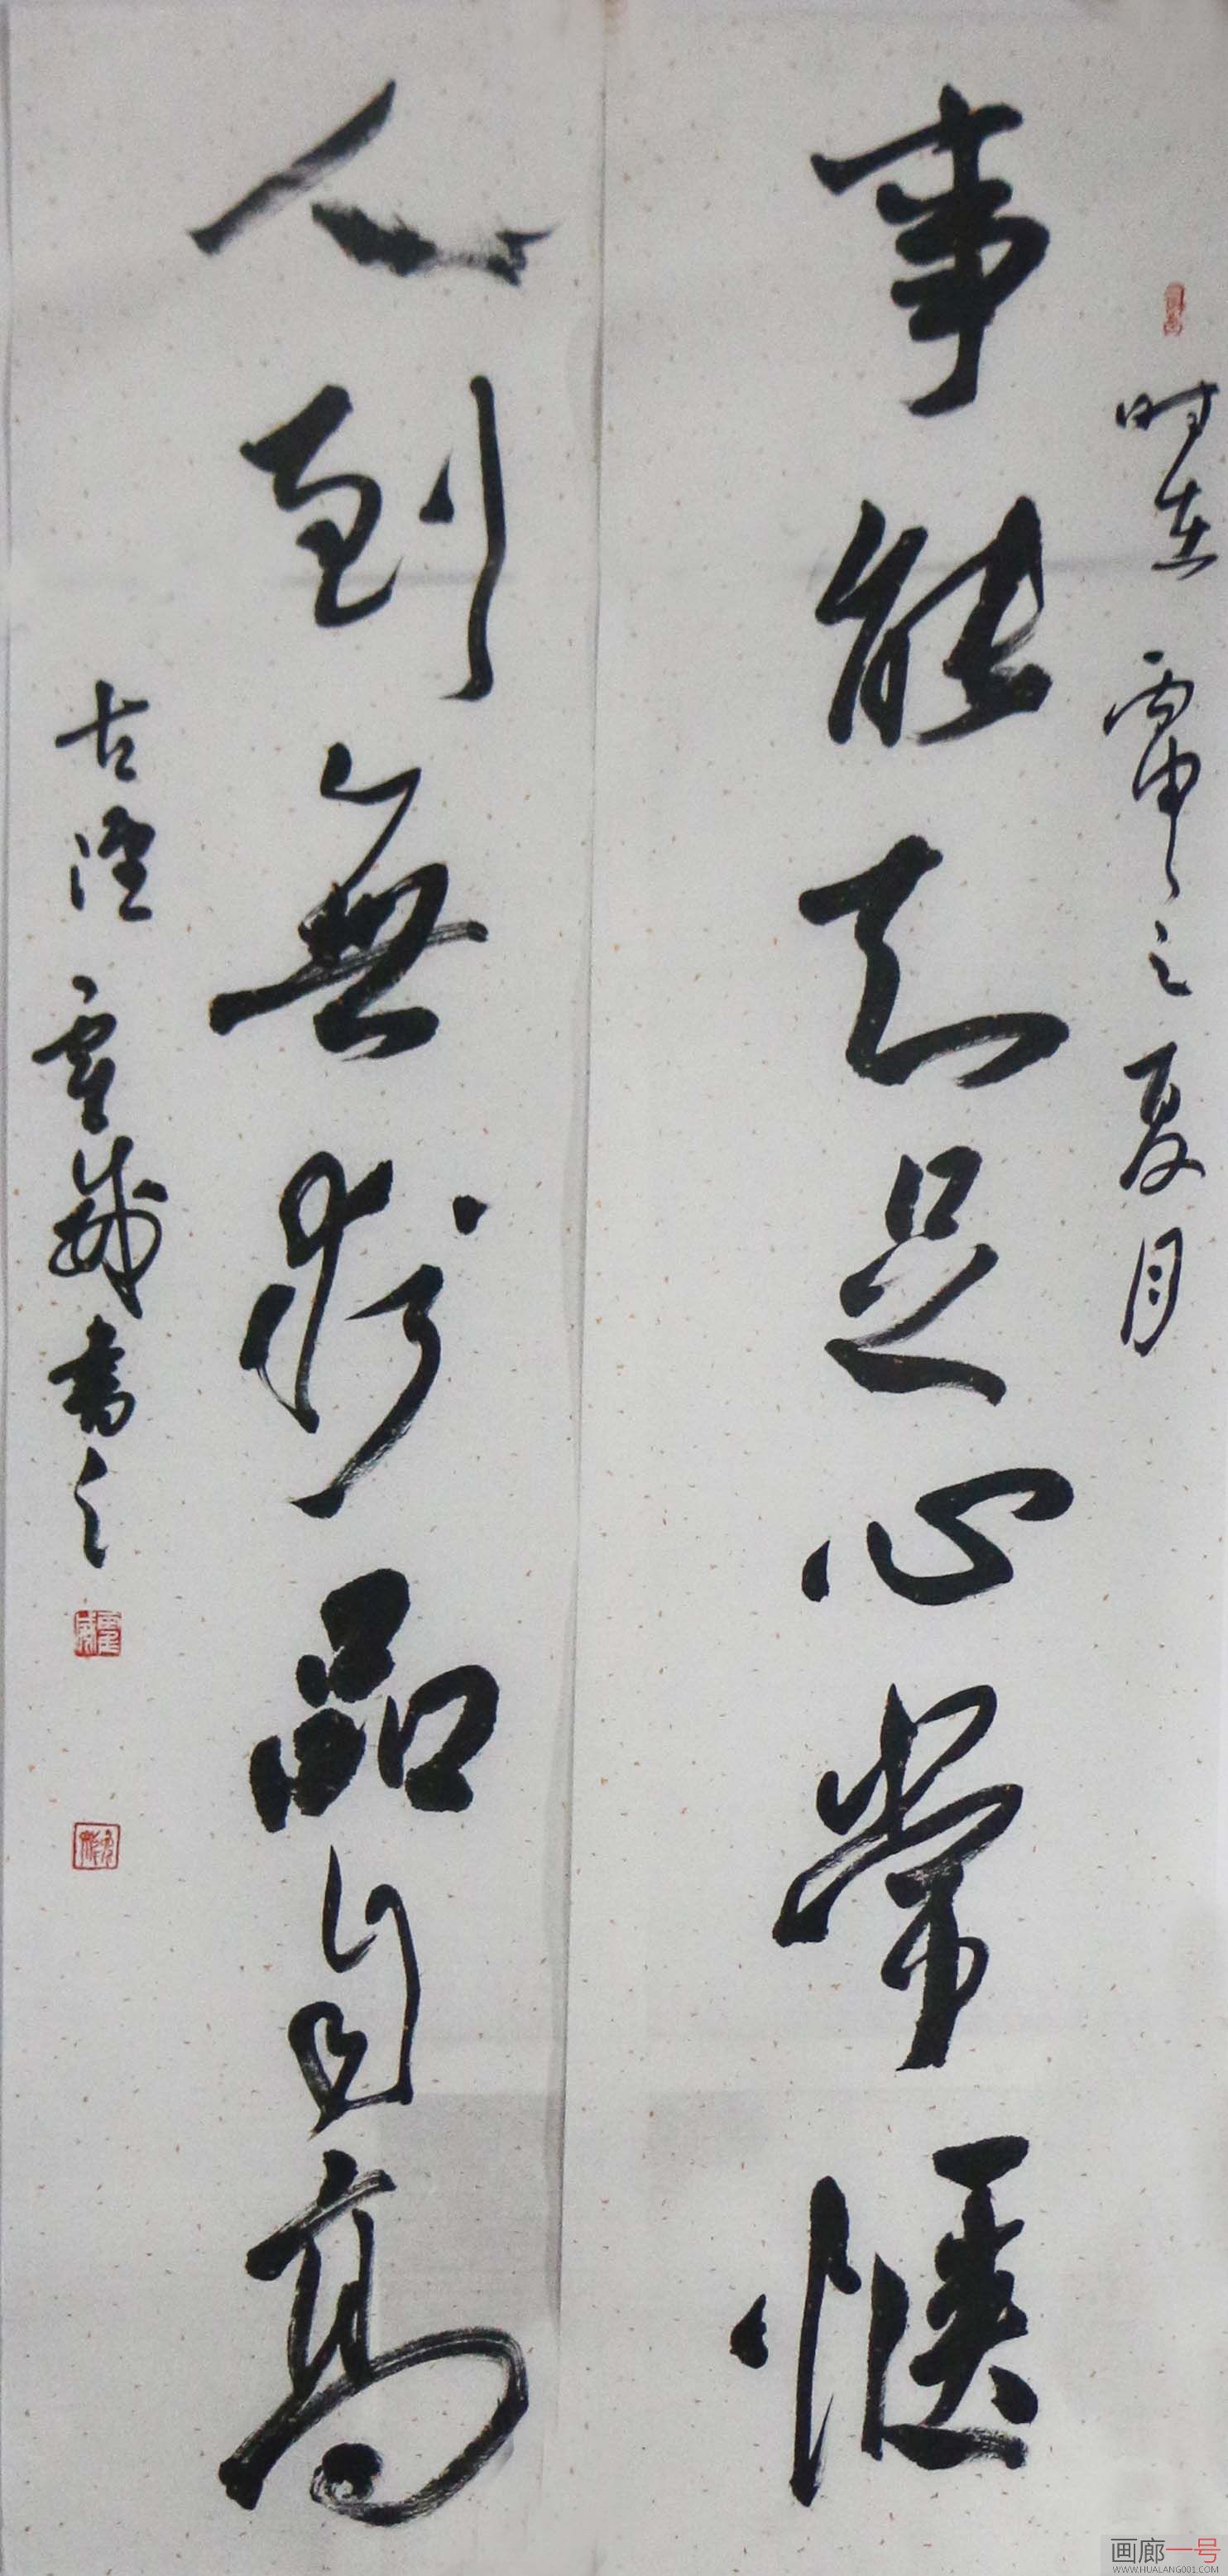 时在丙申之夏月
事能知足心常惬
人到無求品自高
古陸 覃 書之
画廊一号
WWW.HUALANG001.COM